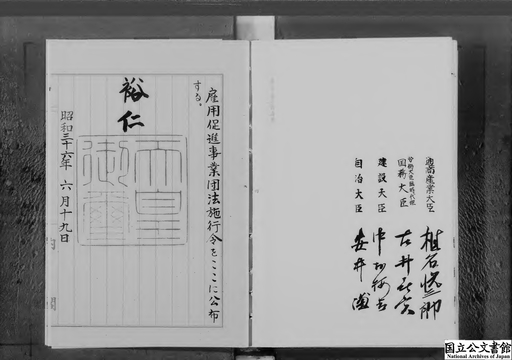 通商産業大臣 椎名悦三郎
労働大臣臨時代理
国務大臣 古井喜実
建設大臣 中村梅吉
自治大臣 安井謙
雇用促進事業団法施行令をここに公布
する。
裕仁
天皇
御璽
昭和三十六年六月十九日
国立公文書館
National Archives of Japan